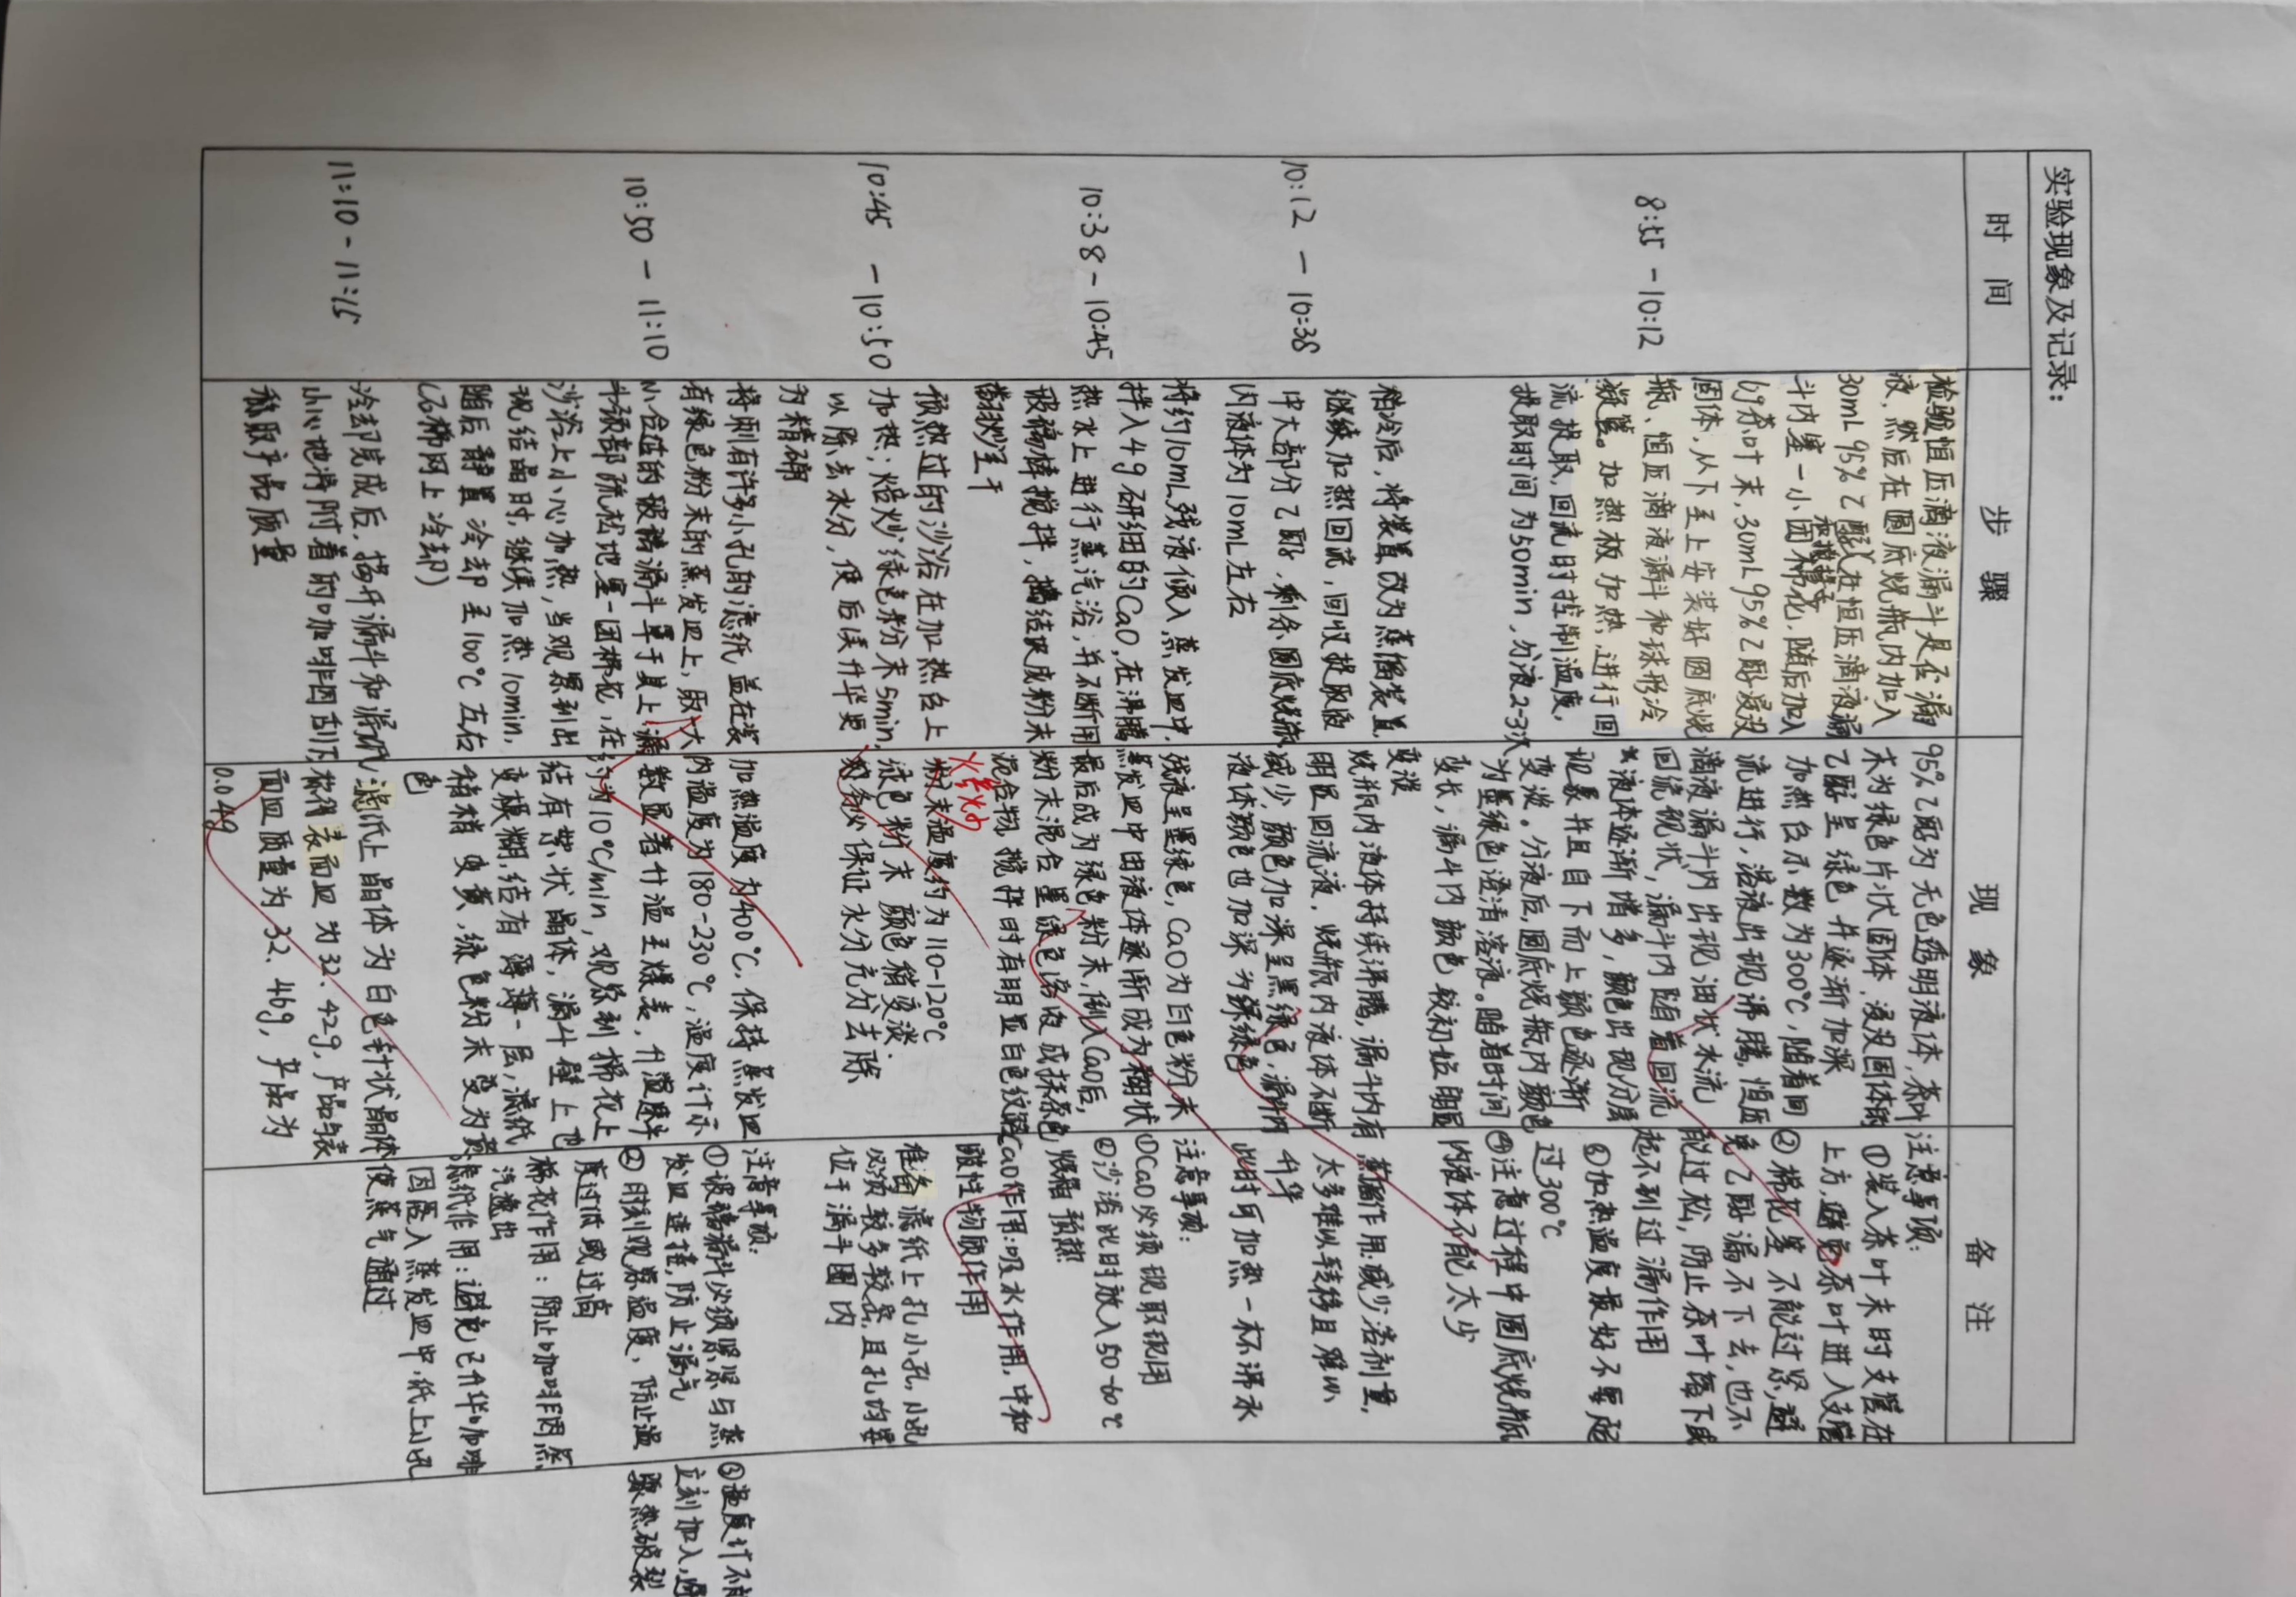 实验现象及记录:
时 间
步 骤
现 象
备 注
8:55 - 10:12
检验恒压滴液漏斗是否漏
液,然后在圆底烧瓶内加入
30mL 95%乙醇,在恒压滴液漏
斗内塞一小团棉花,随后加入
6g茶叶末,30mL95%乙醇浸没
固体,从下至上安装好圆底烧
瓶、恒压滴液漏斗和球形冷
凝管。加热板加热,进行回
流提取,回流时控制温度,
提取时间为50min,分液2-3次
95%乙醇为无色透明液体,茶叶
末为绿色片状固体,浸没固体的
乙醇呈绿色并逐渐加深
加热台示数为300℃,随着回
流进行,溶液出现沸腾,恒压
滴液漏斗内出现油状水流
回流现状,漏斗内随着回流
液体逐渐增多,颜色出现分层
现象并且自下而上颜色逐渐
变淡。分液后,圆底烧瓶内颜色
为墨绿色澄清溶液。随着时间
变长,漏斗内颜色较初始明显
变淡
注意事项:
①装入茶叶末时支管在
上方,避免茶叶进入支管
②棉花塞不能过紧,避
免乙醇漏不下去,也不
能过松,防止茶叶落下或
起不到过滤作用
③加热温度最好不要超
过300℃
④注意过程中圆底烧瓶
内液体不能太少
10:12 - 10:38
稍冷后,将装置改为蒸馏装置
继续加热回流,回收提取液
中大部分乙醇,剩余圆底烧瓶
内液体为10mL左右
烧瓶内液体持续沸腾,漏斗内有
明显回流液,烧瓶内液体不断
减少,颜色加深呈黑绿色,漏斗内
液体颜色也加深为绿色
蒸馏作用:减少溶剂量,
太多难以转移且难以
升华
此时可加热一杯沸水
10:38 - 10:45
将约10mL残液倾入蒸发皿中,
拌入4g研细的CaO,在沸腾
热水上进行蒸汽浴,并不断用
玻璃棒搅拌,搞结块成粉末
翻炒至干
残液呈墨绿色,CaO为白色粉末
蒸发皿中由液体逐渐成为糊状
最后成为绿色粉末,倒入CaO后,
粉末混合墨绿色溶液成抹茶色
混合物,搅拌时有明显白色纹路
注意事项:
①CaO必须现取现用
②沙浴此时放入50-60℃
烘箱预热
CaO作用:吸水作用,中和
酸性物质作用
10:45 - 10:50
预热过的沙浴在加热台上
加热,焙炒绿色粉末5min,
以除去水分,使后续升华更
为精确
粉末温度约为110-120℃
绿色粉末颜色稍变淡
务必保证水分充分去除
准备滤纸上扎小孔,小孔
必须较多较密,且孔均要
位于漏斗圈内
10:50 - 11:10
将刺有许多小孔的滤纸盖在装
有绿色粉末的蒸发皿上,取大
小合适的玻璃漏斗罩于其上,漏
斗颈部疏松地塞一团棉花,在
沙浴上小心加热,当观察到出
现结晶时,继续加热10min,
随后静置冷却至100℃左右
(石棉网上冷却)
加热温度为400℃,保持蒸发皿
内温度为180-230℃,温度计示
数显著升温至爆表,升温速率
约为10℃/min,观察到棉花上
结有絮状晶体,漏斗壁上也
变模糊,结有薄薄一层,滤纸
稍稍变黄,绿色粉末变为黄
色
注意事项:
①玻璃漏斗必须紧紧与蒸
发皿连接,防止漏气
②时刻观察温度,防止温
度过低或过高
③温度计不
立刻加入,
骤热破裂
棉花作用:防止咖啡因蒸
汽逸出
滤纸作用:避免已升华咖啡
因落入蒸发皿中,纸上小孔
使蒸气通过
11:10 - 11:15
冷却完成后,揭开漏斗和滤纸
小心地将附着的咖啡因刮下,
称取产品质量
滤纸上晶体为白色针状晶体
称得表面皿为32.42g,产品与表
面皿质量为32.46g,产品为
0.04g